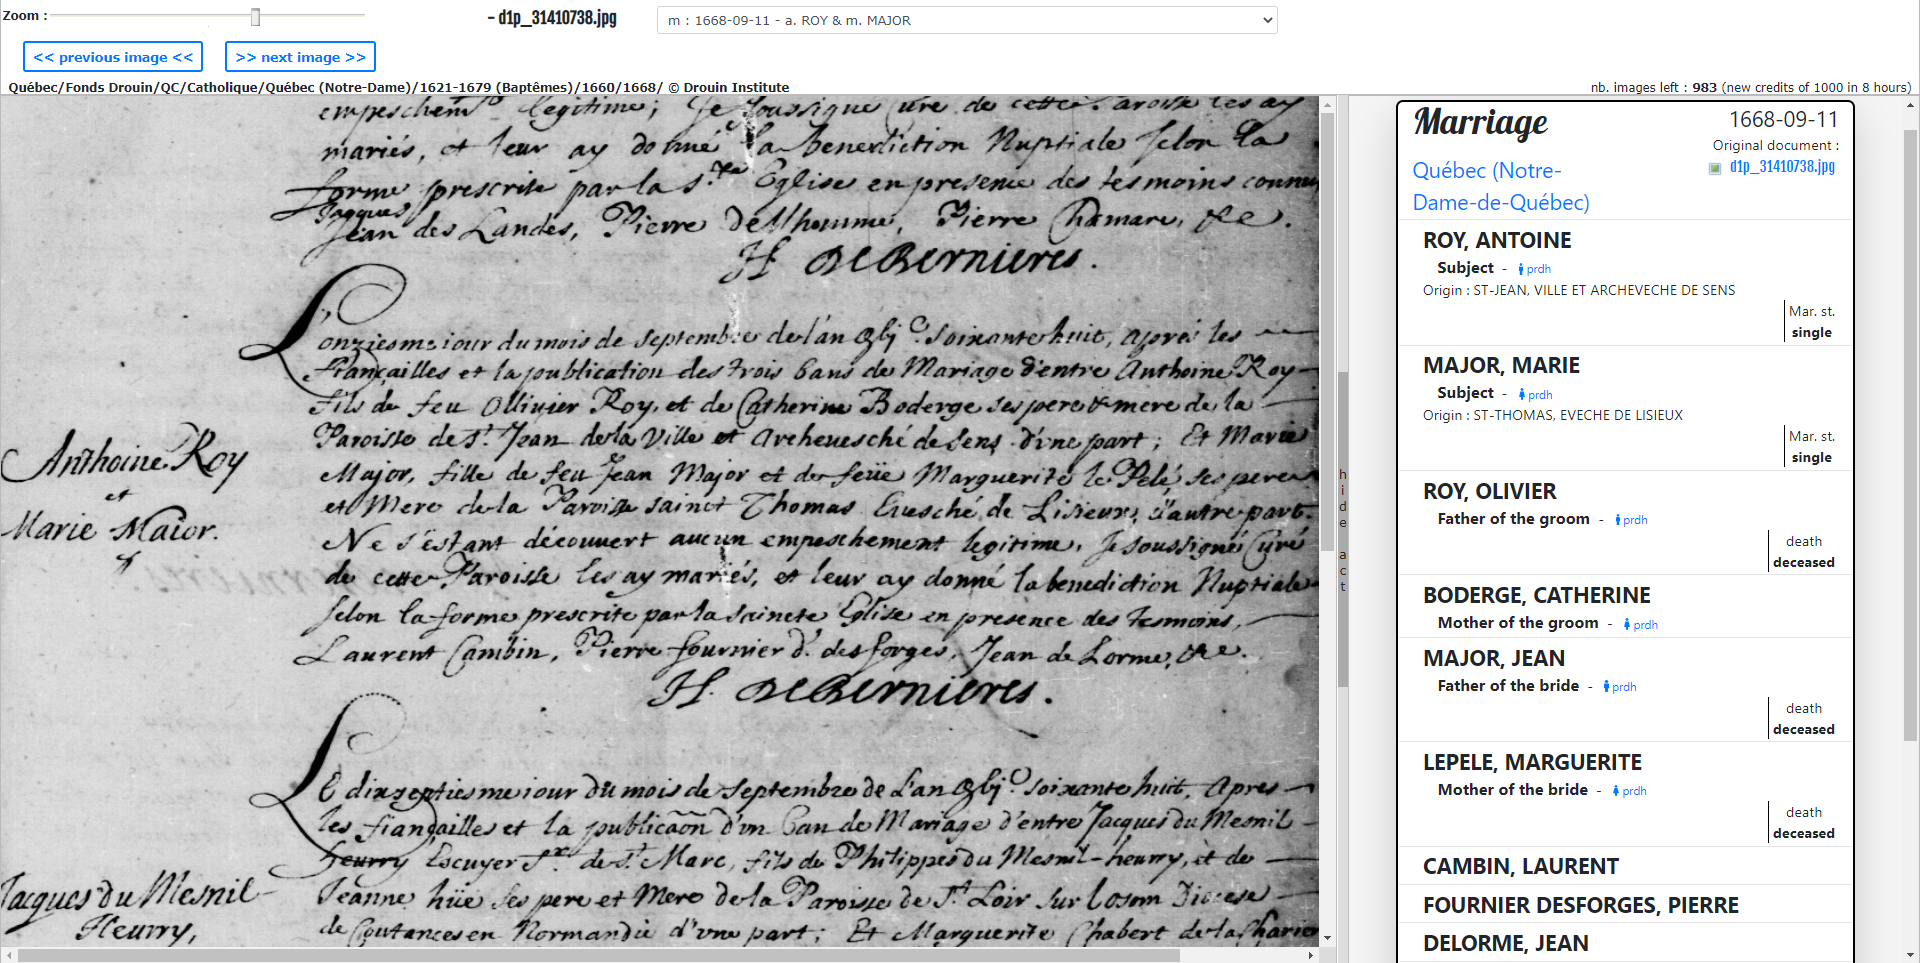 Zoom :
- d1p_31410738.jpg
m : 1668-09-11 - a. ROY & m. MAJOR
<< previous image <<
>> next image >>
Québec/Fonds Drouin/QC/Catholique/Québec (Notre-Dame)/1621-1679 (Baptêmes)/1660/1668/ © Drouin Institute
nb. images left : 983 (new credits of 1000 in 8 hours)
empeschemt legitime; Je soussigné Curé de cette Paroisse les ay
mariés, et leur ay donné la benediction Nuptiale selon la
forme prescrite par la Ste Eglise en presence des tesmoins connus
Jacques
Jean des Landes, Pierre Pierre Chamare, &c.
H. DeBernieres.
L'onziesme iour du mois de septembre de l'an soixante huit, après les
fiançailles et la publication des trois bans de Mariage d'entre Anthoine Roy
fils de feu Ollivier Roy, et de Catherine Boderge ses pere & mere de la
Paroisse de St. Jean de la Ville et Archevesché de Sens d'une part; Et Marie
Major, fille de feu Jean Major et de feüe Marguerite le Pelé, ses peres
et Mere de la Paroisse sainct Thomas Evesché de Lisieux, d'autre part.
Ne s'estant découvert aucun empeschement legitime, Je soussigné Curé
de cette Paroisse les ay mariés, et leur ay donné la benediction Nuptiale
selon la forme prescrite par la saincte Eglise en presence des tesmoins,
Laurent Cambin, Pierre fournier d. des forges, Jean de Lorme, &c.
H. DeBernieres.
Anthoine Roy
et
Marie Maior.
Le dixseptiesme iour du mois de septembre de l'an soixante huit, Apres
les fiançailles et la publicaõn d'un ban de Mariage d'entre Jacques du Mesnil
heurry Escuyer Sr. de St. Marc, fils de Philippes du Mesnil-heurry, et de
Jeanne hüe ses pere et Mere de la Paroisse de St. Loir sur Diocese
de Coutances en Normandie d'une part; Et Marguerite Chabert de la Charier
Jacques du Mesnil
Heurry,
hide act
Marriage
1668-09-11
Original document :
d1p_31410738.jpg
Québec (Notre-
Dame-de-Québec)
ROY, ANTOINE
Subject - prdh
Origin : ST-JEAN, VILLE ET ARCHEVECHE DE SENS
Mar. st.
single
MAJOR, MARIE
Subject - prdh
Origin : ST-THOMAS, EVECHE DE LISIEUX
Mar. st.
single
ROY, OLIVIER
Father of the groom - prdh
death
deceased
BODERGE, CATHERINE
Mother of the groom - prdh
MAJOR, JEAN
Father of the bride - prdh
death
deceased
LEPELE, MARGUERITE
Mother of the bride - prdh
death
deceased
CAMBIN, LAURENT
FOURNIER DESFORGES, PIERRE
DELORME, JEAN